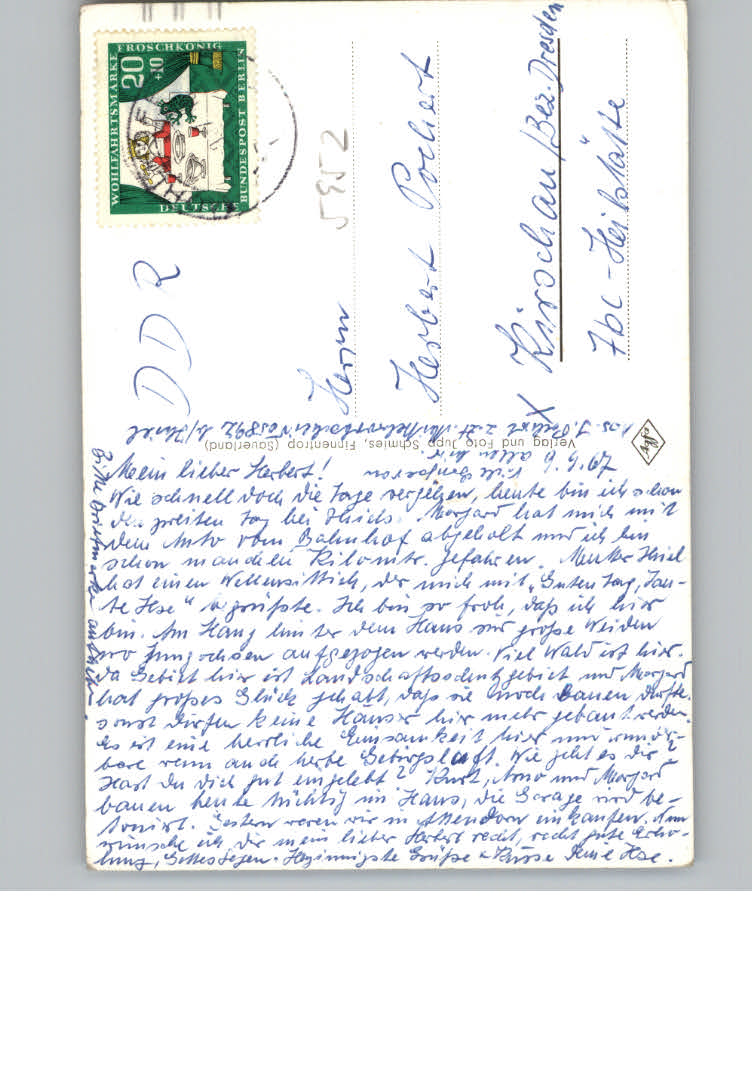 WOHLFAHRTSMARKE
FROSCHKÖNIG
20
+10
DEUTSCHE
BUNDESPOST BERLIN
5952
DDR
Herrn
Herbert Pochert
X Kirschau/Bez. Dresden
Tbc-Heilstätte
Verlag und Foto Jupp Schmies, Finnentrop (Sauerland)
Mein lieber Herbert!
Wie schnell doch die Tage vergehen, heute bin ich schon
den zweiten Tag bei Thiels. Margard hat mich mit
dem Auto vom Bahnhof abgeholt und ich bin
schon manchen Kilomtr. gefahren. Mutter Thiel
hat einen Wellensittich, der mich mit „Guten Tag, Tan-
te Ilse" begrüßte. Ich bin so froh, daß ich hier
bin. Am Hang hinter dem Haus sind große Weiden
wo Jungochsen aufgezogen werden. Viel Wald ist hier.
Da Gebiet hier ist Landschaftsschutzgebiet und Margard
hat großes Glück gehabt, daß sie noch bauen durfte.
sonst dürfen keine Häuser hier mehr gebaut werden.
Es ist eine herrliche Einsamkeit hier und wunder-
bare wenn auch herbe Gebirgsluft. Wie geht es dir?
Hast du dich gut eingelebt? Kurt, Arno und Margard
bauen heute tüchtig im Haus, die Garage wird be-
toniert. Gestern waren wir in Attendorn einkaufen. Nun
wünsche ich dir mein lieber Herbert recht, recht gute Erho-
lung, Gottes Segen. Herzinnigste Grüße & Küsse Deine Ilse.
Bitte Briefmarke aufheben